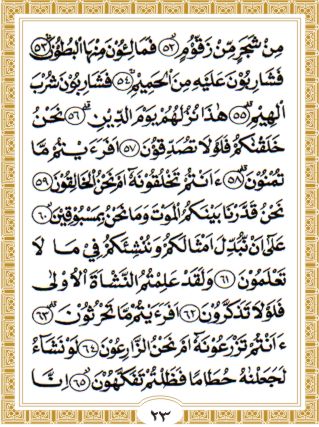 مِنْ شَجَرٍ مِّنْ زَقُّوْمٍ ۙ﴿۵۲﴾ فَمَالِـُٔوْنَ مِنْهَا الْبُطُوْنَ ۚ﴿۵۳﴾
فَشَارِبُوْنَ عَلَيْهِ مِنَ الْحَمِيْمِ ۚ﴿۵۴﴾ فَشَارِبُوْنَ شُرْبَ
الْهِيْمِ ؕ﴿۵۵﴾ هٰذَا نُزُلُهُمْ يَوْمَ الدِّيْنِ ؕ﴿۵۶﴾ نَحْنُ
خَلَقْنٰكُمْ فَلَوْلَا تُصَدِّقُوْنَ ﴿۵۷﴾ اَفَرَءَيْتُمْ مَّا
تُمْنُوْنَ ؕ﴿۵۸﴾ ءَاَنْتُمْ تَخْلُقُوْنَهٗۤ اَمْ نَحْنُ الْخَالِقُوْنَ ﴿۵۹﴾
نَحْنُ قَدَّرْنَا بَيْنَكُمُ الْمَوْتَ وَمَا نَحْنُ بِمَسْبُوْقِيْنَ ۙ﴿۶۰﴾
عَلٰۤى اَنْ نُّبَدِّلَ اَمْثَالَكُمْ وَنُنْشِئَكُمْ فِيْ مَا لَا
تَعْلَمُوْنَ ﴿۶۱﴾ وَلَقَدْ عَلِمْتُمُ النَّشْاَةَ الْاُوْلٰى
فَلَوْلَا تَذَكَّرُوْنَ ﴿۶۲﴾ اَفَرَءَيْتُمْ مَّا تَحْرُثُوْنَ ؕ﴿۶۳﴾
ءَاَنْتُمْ تَزْرَعُوْنَهٗۤ اَمْ نَحْنُ الزَّارِعُوْنَ ﴿۶۴﴾ لَوْ نَشَآءُ
لَجَعَلْنٰهُ حُطَامًا فَظَلْتُمْ تَفَكَّهُوْنَ ﴿۶۵﴾ اِنَّا
۲۳